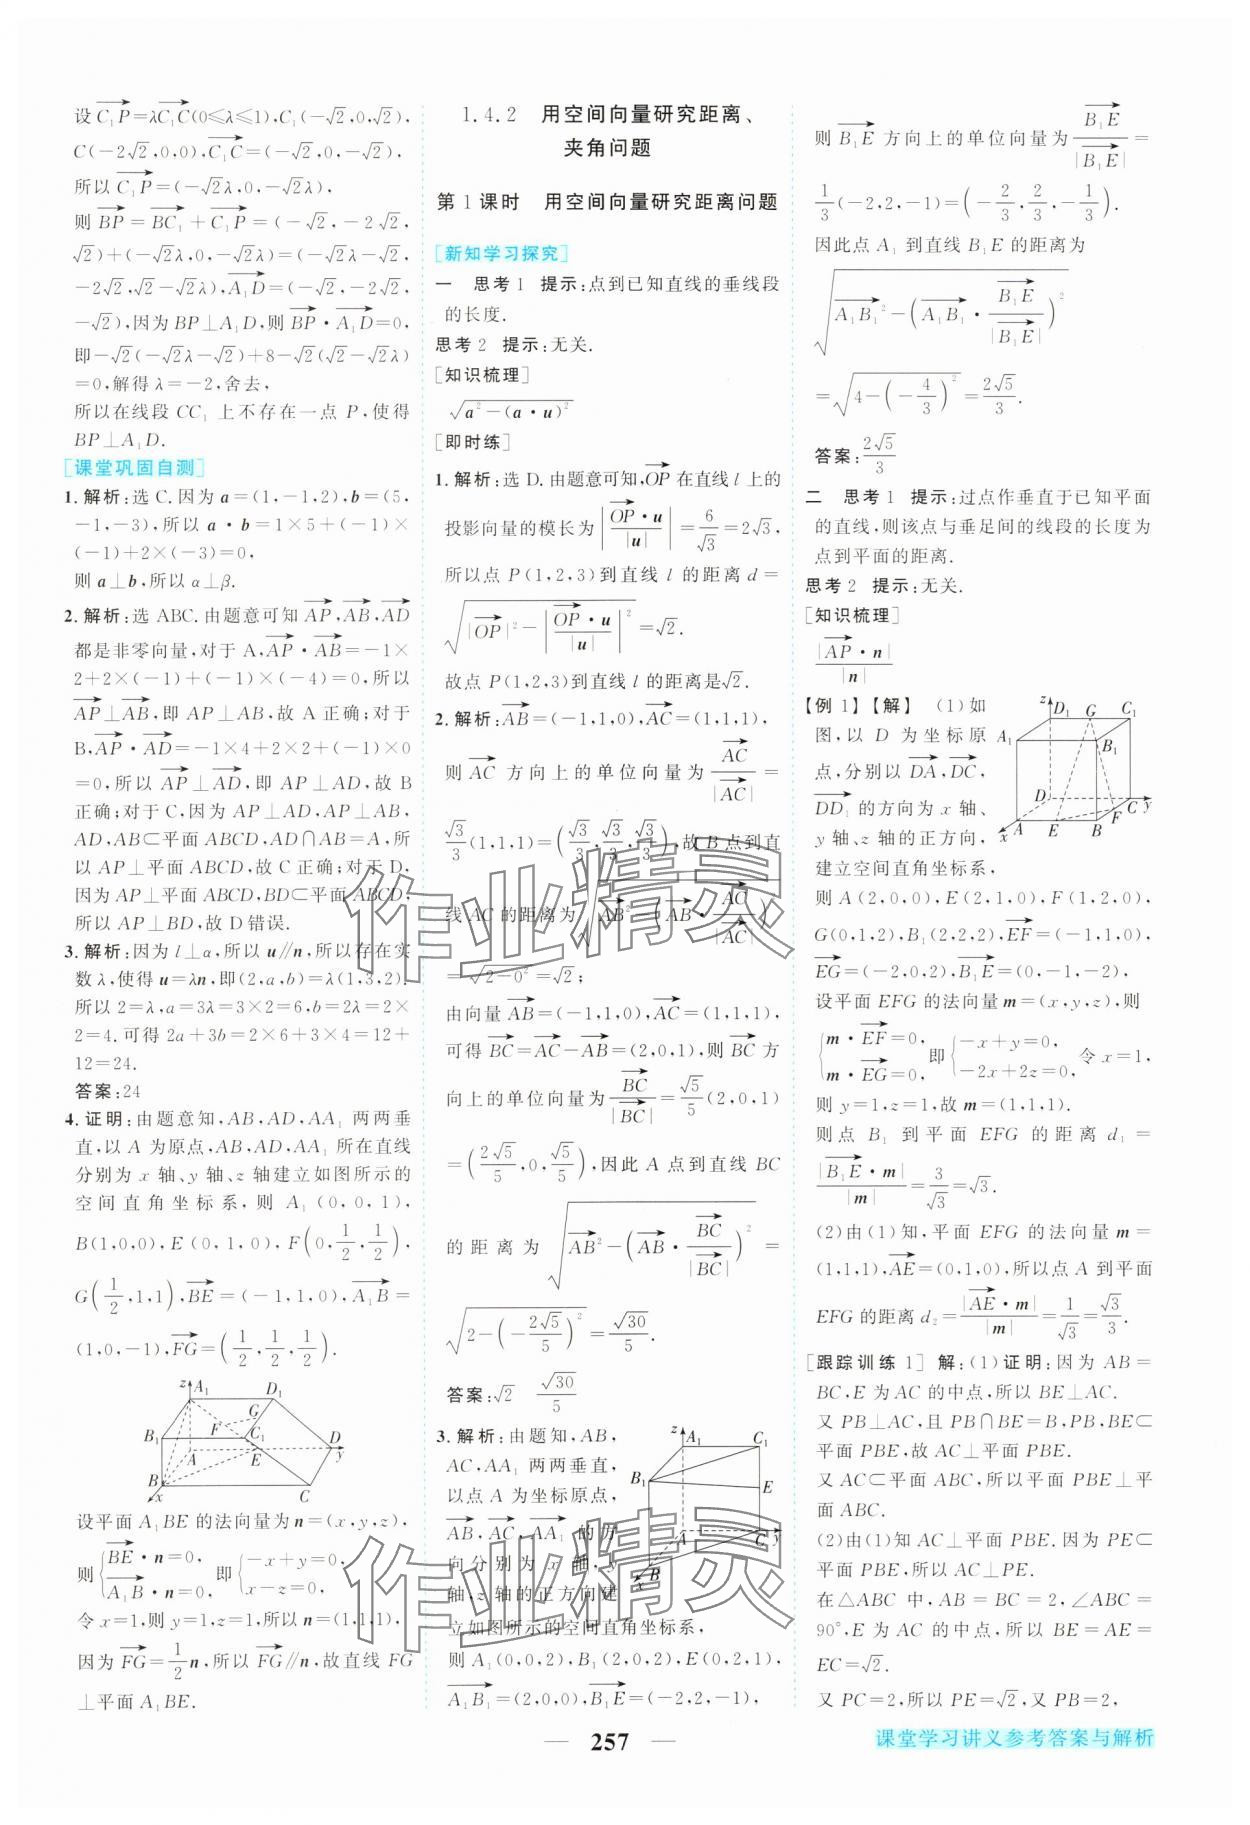 设$\overrightarrow{C_1P}$=λ$\overrightarrow{C_1C}$(0≤λ≤1),C₁(-√2,0,√2),
C(-2√2,0,0),$\overrightarrow{C_1C}$=(-√2,0,-√2).
所以$\overrightarrow{C_1P}$=(-√2λ,0,-√2λ),
则$\overrightarrow{BP}$=$\overrightarrow{BC_1}$+$\overrightarrow{C_1P}$=(-√2,-2√2,
√2)+(-√2λ,0,-√2λ)=(-√2λ-√2,
-2√2,√2-√2λ),$\overrightarrow{A_1D}$=(-√2,-2√2,
-√2),因为BP⊥A₁D,则$\overrightarrow{BP}$·$\overrightarrow{A_1D}$=0,
即-√2(-√2λ-√2)+8-√2(√2-√2λ)
=0,解得λ=-2,舍去,
所以在线段CC₁上不存在一点P,使得
BP⊥A₁D.
[课堂巩固自测]
1.解析:选C.因为a=(1,-1,2),b=(5,
-1,-3),所以a·b=1×5+(-1)×
(-1)+2×(-3)=0,
则a⊥b,所以α⊥β.
2.解析:选ABC.由题意可知$\overrightarrow{AP}$,$\overrightarrow{AB}$,$\overrightarrow{AD}$
都是非零向量,对于A,$\overrightarrow{AP}$·$\overrightarrow{AB}$=-1×
2+2×(-1)+(-1)×(-4)=0,所以
$\overrightarrow{AP}$⊥$\overrightarrow{AB}$,即AP⊥AB,故A正确;对于
B,$\overrightarrow{AP}$·$\overrightarrow{AD}$=-1×4+2×2+(-1)×0
=0,所以$\overrightarrow{AP}$⊥$\overrightarrow{AD}$,即AP⊥AD,故B
正确;对于C,因为AP⊥AD,AP⊥AB,
AD,AB⊂平面ABCD,AD∩AB=A,所
以AP⊥平面ABCD,故C正确;对于D,
因为AP⊥平面ABCD,BD⊂平面ABCD,
所以AP⊥BD,故D错误.
3.解析:因为l⊥α,所以u∥n,所以存在实
数λ,使得u=λn,即(2,a,b)=λ(1,3,2).
所以2=λ,a=3λ=3×2=6,b=2λ=2×
2=4.可得2a+3b=2×6+3×4=12+
12=24.
答案:24
4.证明:由题意知,AB,AD,AA₁两两垂
直,以A为原点,AB,AD,AA₁所在直线
分别为x轴、y轴、z轴建立如图所示的
空间直角坐标系,则A₁(0,0,1),
B(1,0,0),E(0,1,0),F(0,1/2,1/2),
G(1/2,1,1),$\overrightarrow{BE}$=(-1,1,0),$\overrightarrow{A_1B}$=
(1,0,-1),$\overrightarrow{FG}$=(1/2,1/2,1/2).
z A₁ D₁
G
B₁ F C₁ D
A E y
B
x C
设平面A₁BE的法向量为n=(x,y,z),
则{$\overrightarrow{BE}$·n=0, $\overrightarrow{A_1B}$·n=0, 即{-x+y=0, x-z=0.
令x=1,则y=1,z=1,所以n=(1,1,1),
因为$\overrightarrow{FG}$=1/2 n,所以$\overrightarrow{FG}$∥n,故直线FG
⊥平面A₁BE.
1.4.2 用空间向量研究距离、
夹角问题
第1课时 用空间向量研究距离问题
[新知学习探究]
一 思考1 提示:点到已知直线的垂线段
的长度.
思考2 提示:无关.
[知识梳理]
$\sqrt{a^2-(a·u)^2}$
[即时练]
1.解析:选D.由题意可知,$\overrightarrow{OP}$在直线l上的
投影向量的模长为|$\frac{\overrightarrow{OP}·u}{|u|}$|=$\frac{6}{\sqrt3}$=2√3,
所以点P(1,2,3)到直线l的距离d=
$\sqrt{|\overrightarrow{OP}|^2-|\frac{\overrightarrow{OP}·u}{|u|}|^2}$=√2.
故点P(1,2,3)到直线l的距离是√2.
2.解析:$\overrightarrow{AB}$=(-1,1,0),$\overrightarrow{AC}$=(1,1,1),
则$\overrightarrow{AC}$方向上的单位向量为$\frac{\overrightarrow{AC}}{|\overrightarrow{AC}|}$=
$\frac{\sqrt3}{3}$(1,1,1)=($\frac{\sqrt3}{3}$,$\frac{\sqrt3}{3}$,$\frac{\sqrt3}{3}$),故B点到直
线AC的距离为$\sqrt{\overrightarrow{AB}^2-(\overrightarrow{AB}·\frac{\overrightarrow{AC}}{|\overrightarrow{AC}|})^2}$
=$\sqrt{2-0^2}$=√2;
由向量$\overrightarrow{AB}$=(-1,1,0),$\overrightarrow{AC}$=(1,1,1),
可得$\overrightarrow{BC}$=$\overrightarrow{AC}$-$\overrightarrow{AB}$=(2,0,1),则$\overrightarrow{BC}$方
向上的单位向量为$\frac{\overrightarrow{BC}}{|\overrightarrow{BC}|}$=$\frac{\sqrt5}{5}$(2,0,1)
=($\frac{2\sqrt5}{5}$,0,$\frac{\sqrt5}{5}$),因此A点到直线BC
的距离为$\sqrt{\overrightarrow{AB}^2-(\overrightarrow{AB}·\frac{\overrightarrow{BC}}{|\overrightarrow{BC}|})^2}$=
$\sqrt{2-(-\frac{2\sqrt5}{5})^2}$=$\frac{\sqrt{30}}{5}$.
答案:√2 $\frac{\sqrt{30}}{5}$
3.解析:由题知,AB,
AC,AA₁两两垂直,
以点A为坐标原点,
$\overrightarrow{AB}$,$\overrightarrow{AC}$,$\overrightarrow{AA_1}$的方
向分别为x轴、y
轴、z轴的正方向建
立如图所示的空间直角坐标系,
z A₁ C₁
B₁ E
A C y
x B
则A₁(0,0,2),B₁(2,0,2),E(0,2,1),
$\overrightarrow{A_1B_1}$=(2,0,0),$\overrightarrow{B_1E}$=(-2,2,-1),
则$\overrightarrow{B_1E}$方向上的单位向量为$\frac{\overrightarrow{B_1E}}{|\overrightarrow{B_1E}|}$=
$\frac{1}{3}$(-2,2,-1)=(-$\frac{2}{3}$,$\frac{2}{3}$,-$\frac{1}{3}$).
因此点A₁到直线B₁E的距离为
$\sqrt{\overrightarrow{A_1B_1}^2-(\overrightarrow{A_1B_1}·\frac{\overrightarrow{B_1E}}{|\overrightarrow{B_1E}|})^2}$
=$\sqrt{4-(-\frac{4}{3})^2}$=$\frac{2\sqrt5}{3}$.
答案:$\frac{2\sqrt5}{3}$
二 思考1 提示:过点作垂直于已知平面
的直线,则该点与垂足间的线段的长度为
点到平面的距离.
思考2 提示:无关.
[知识梳理]
$\frac{|\overrightarrow{AP}·n|}{|n|}$
[例1][解] (1)如
图,以D为坐标原
点,分别以$\overrightarrow{DA}$,$\overrightarrow{DC}$,
$\overrightarrow{DD_1}$的方向为x轴、
y轴、z轴的正方向,
建立空间直角坐标系,
z D₁ G C₁
A₁ B₁
D C y
x A E B F
则A(2,0,0),E(2,1,0),F(1,2,0),
G(0,1,2),B₁(2,2,2),$\overrightarrow{EF}$=(-1,1,0),
$\overrightarrow{EG}$=(-2,0,2),$\overrightarrow{B_1E}$=(0,-1,-2),
设平面EFG的法向量m=(x,y,z),则
{m·$\overrightarrow{EF}$=0, m·$\overrightarrow{EG}$=0, 即{-x+y=0, -2x+2z=0. 令x=1,
则y=1,z=1,故m=(1,1,1).
则点B₁到平面EFG的距离d₁=
$\frac{|\overrightarrow{B_1E}·m|}{|m|}$=$\frac{3}{\sqrt3}$=√3.
(2)由(1)知,平面EFG的法向量m=
(1,1,1),$\overrightarrow{AE}$=(0,1,0),所以点A到平面
EFG的距离d₂=$\frac{|\overrightarrow{AE}·m|}{|m|}$=$\frac{1}{\sqrt3}$=$\frac{\sqrt3}{3}$.
[跟踪训练1] 解:(1)证明:因为AB=
BC,E为AC的中点,所以BE⊥AC.
又PB⊥AC,且PB∩BE=B,PB,BE⊂
平面PBE,故AC⊥平面PBE.
又AC⊂平面ABC,所以平面PBE⊥平
面ABC.
(2)由(1)知AC⊥平面PBE.因为PE⊂
平面PBE,所以AC⊥PE.
在△ABC中,AB=BC=2,∠ABC=
90°,E为AC的中点,所以BE=AE=
EC=√2.
又PC=2,所以PE=√2,又PB=2,
作业精灵
作业精灵
— 257 —
课堂学习讲义参考答案与解析